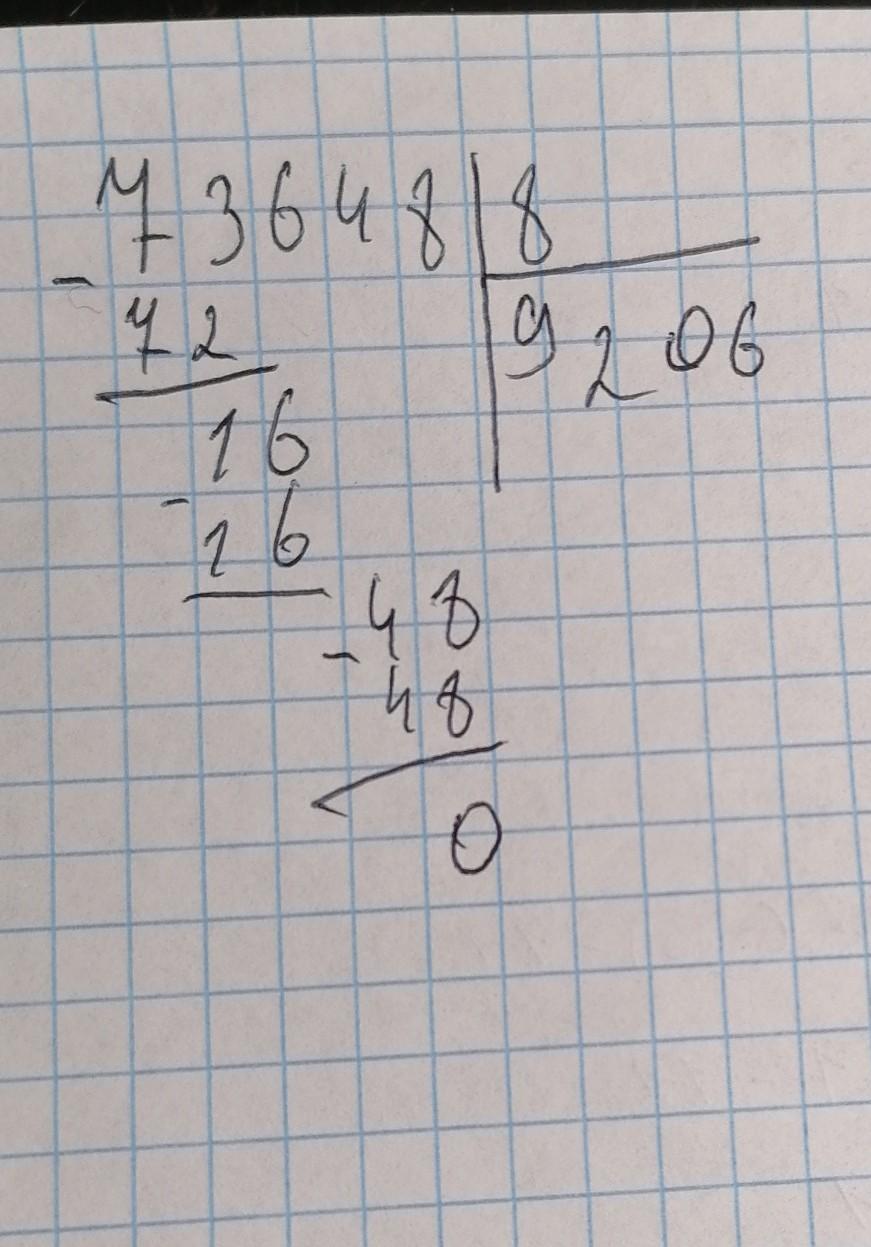 73648 8
- 72 9206
16
- 16
48
- 48
0